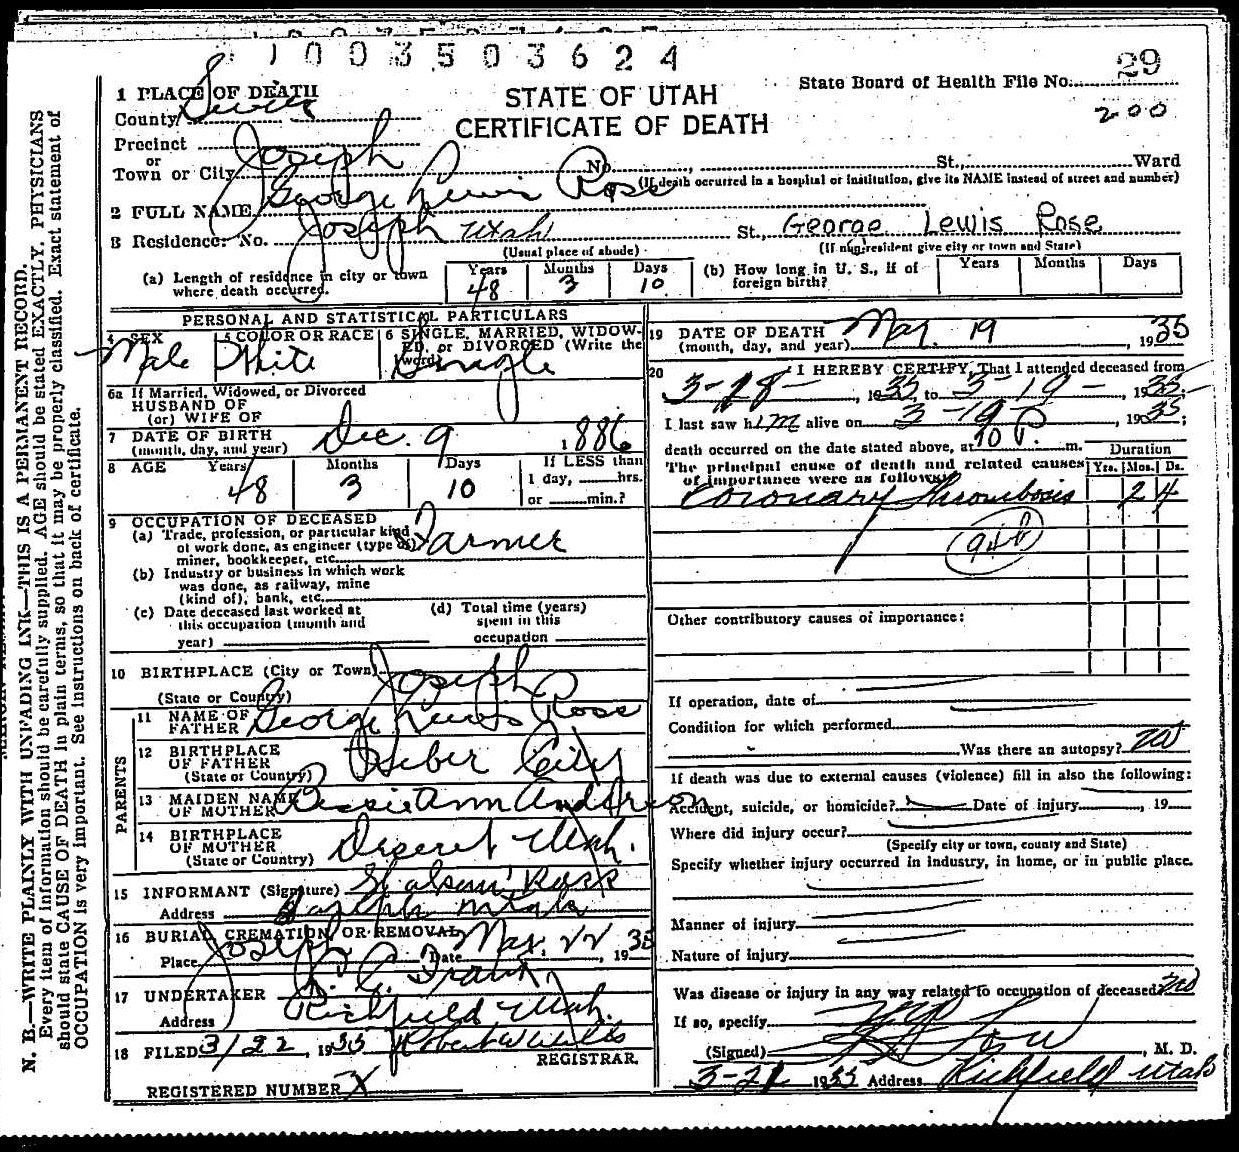 1003503624
29
State Board of Health File No.
200
STATE OF UTAH
CERTIFICATE OF DEATH
1 PLACE OF DEATH
County Sevier
Precinct
or
Town or City Joseph No. St., Ward
(If death occurred in a hospital or institution, give its NAME instead of street and number)
2 FULL NAME George Lewis Rose
3 Residence: No. Joseph Utah St., George Lewis Rose
(Usual place of abode) (If nonresident give city or town and State)
(a) Length of residence in city or town where death occurred. Years 48 Months 3 Days 10
(b) How long in U. S., if of foreign birth? Years Months Days
PERSONAL AND STATISTICAL PARTICULARS
4 SEX Male
5 COLOR OR RACE White
6 SINGLE, MARRIED, WIDOWED, or DIVORCED (Write the word) Single
6a If Married, Widowed, or Divorced
HUSBAND OF
(or) WIFE OF
7 DATE OF BIRTH (month, day, and year) Dec. 9 1886
8 AGE Years 48 Months 3 Days 10
If LESS than
1 day, hrs.
or min.?
9 OCCUPATION OF DECEASED
(a) Trade, profession, or particular kind of work done, as engineer (type of) miner, bookkeeper, etc. Farmer
(b) Industry or business in which work was done, as railway, mine (kind of), bank, etc.
(c) Date deceased last worked at this occupation (month and year)
(d) Total time (years) spent in this occupation
10 BIRTHPLACE (City or Town) Joseph
(State or Country)
PARENTS
11 NAME OF FATHER George Lewis Ross
12 BIRTHPLACE OF FATHER (State or Country) Heber City
13 MAIDEN NAME OF MOTHER Bessie Ann Anderson
14 BIRTHPLACE OF MOTHER (State or Country) Deseret Utah.
15 INFORMANT (Signature)
Address Joseph Utah
16 BURIAL, CREMATION, OR REMOVAL
Place Joseph Date Mar. 22, 1935
17 UNDERTAKER
Address Richfield Utah.
18 FILED 3/22, 1935
REGISTRAR.
REGISTERED NUMBER X
19 DATE OF DEATH (month, day, and year) Mar. 19, 1935
20 I HEREBY CERTIFY, That I attended deceased from
3-18-, 1935, to 3-19-, 1935.
I last saw him alive on 3-19-, 1935;
death occurred on the date stated above, at 10 P. m.
The principal cause of death and related causes of importance were as follows:
Duration
Yrs. Mos. Ds.
Coronary Thrombosis 2 4
94b
Other contributory causes of importance:
If operation, date of
Condition for which performed
Was there an autopsy? no
If death was due to external causes (violence) fill in also the following:
Accident, suicide, or homicide? Date of injury , 19
Where did injury occur?
(Specify city or town, county and State)
Specify whether injury occurred in industry, in home, or in public place.
Manner of injury
Nature of injury
Was disease or injury in any way related to occupation of deceased? no
If so, specify
(Signed) , M. D.
3-21 1935 Address Richfield Utah
N. B.—WRITE PLAINLY WITH UNFADING INK—THIS IS A PERMANENT RECORD.
Every item of information should be carefully supplied. AGE should be stated EXACTLY. PHYSICIANS
should state CAUSE OF DEATH in plain terms, so that it may be properly classified. Exact statement of
OCCUPATION is very important. See instructions on back of certificate.